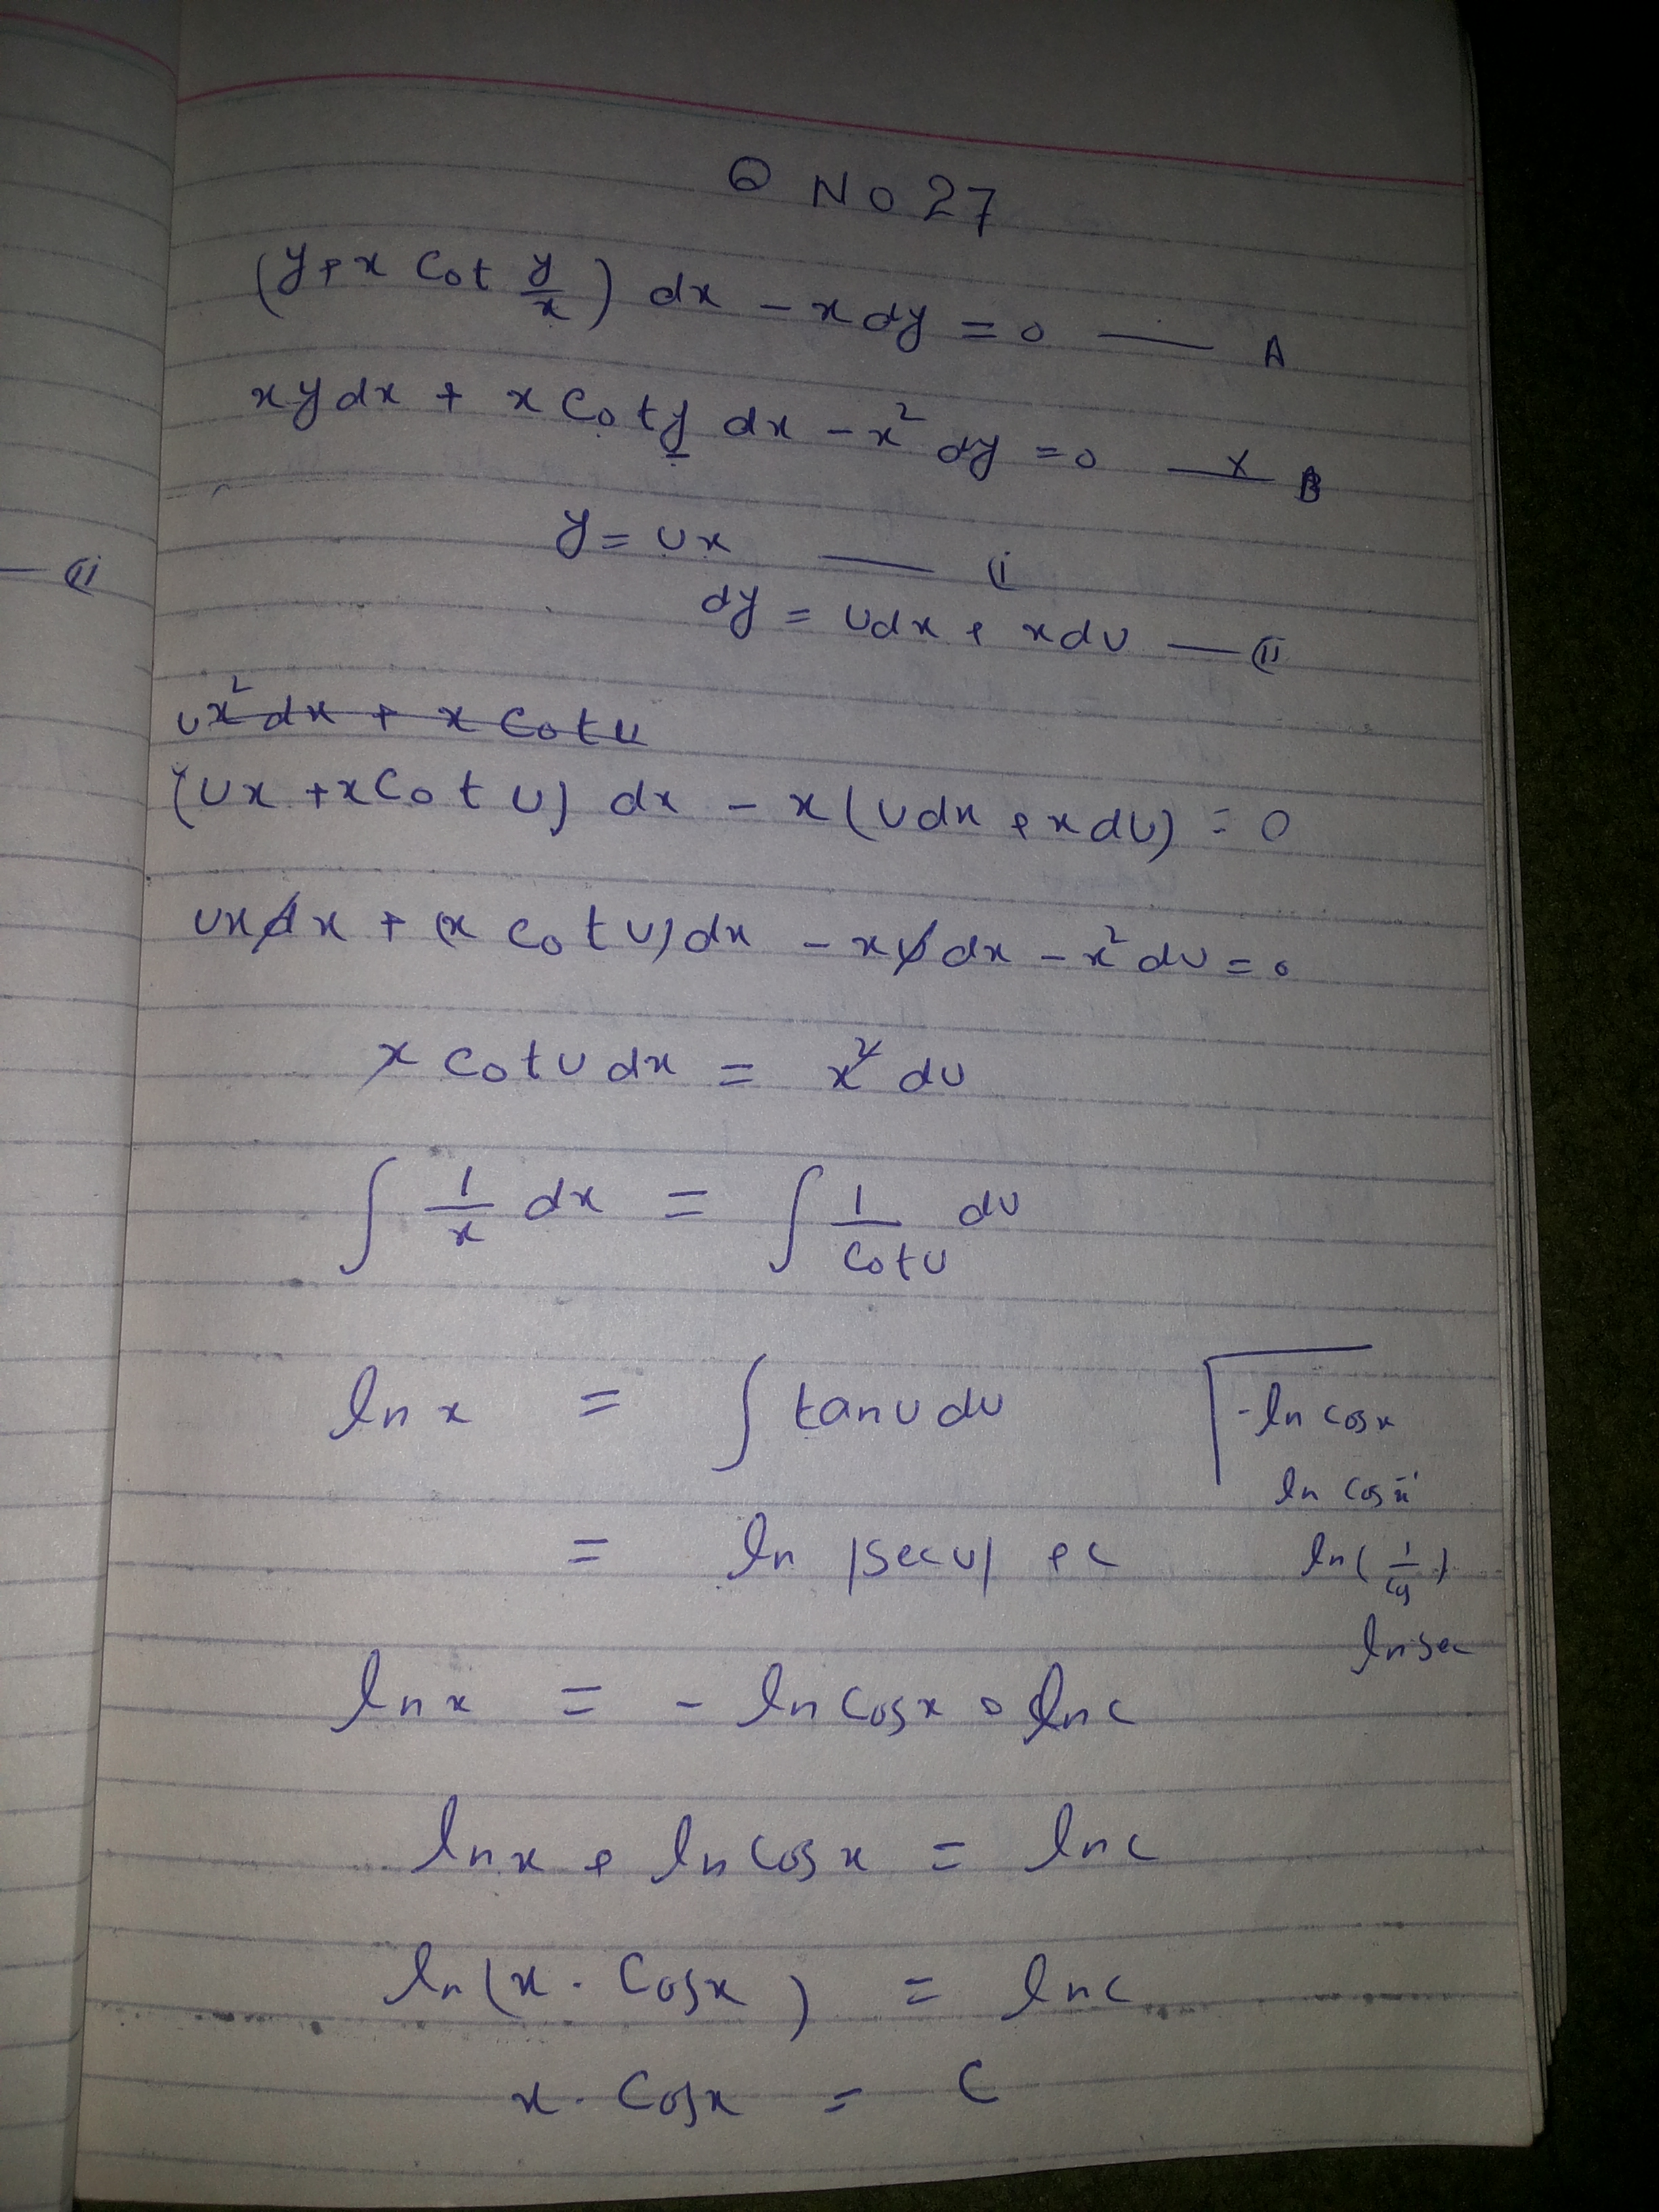 Q No 27
(y + x Cot y/x) dx - x dy = 0 — A
xy dx + x Cot y dx - x² dy = 0 — x B
y = ux — (i
dy = udx + xdu — (ii
— (ii
ux² dx + x Cot u
(ux + x Cot u) dx - x (udx + xdu) = 0
ux dx + (x Cot u) dx - xu dx - x² du = 0
x Cot u dx = x² du
∫ 1/x dx = ∫ 1/Cot u du
ln x = ∫ tan u du
-ln cos x
ln cos x⁻¹
= ln |sec u| + c
ln (1/cos)
ln sec
ln x = - ln cos x + ln c
ln x + ln cos x = ln c
ln (x . Cos x) = ln c
x . Cos x = C